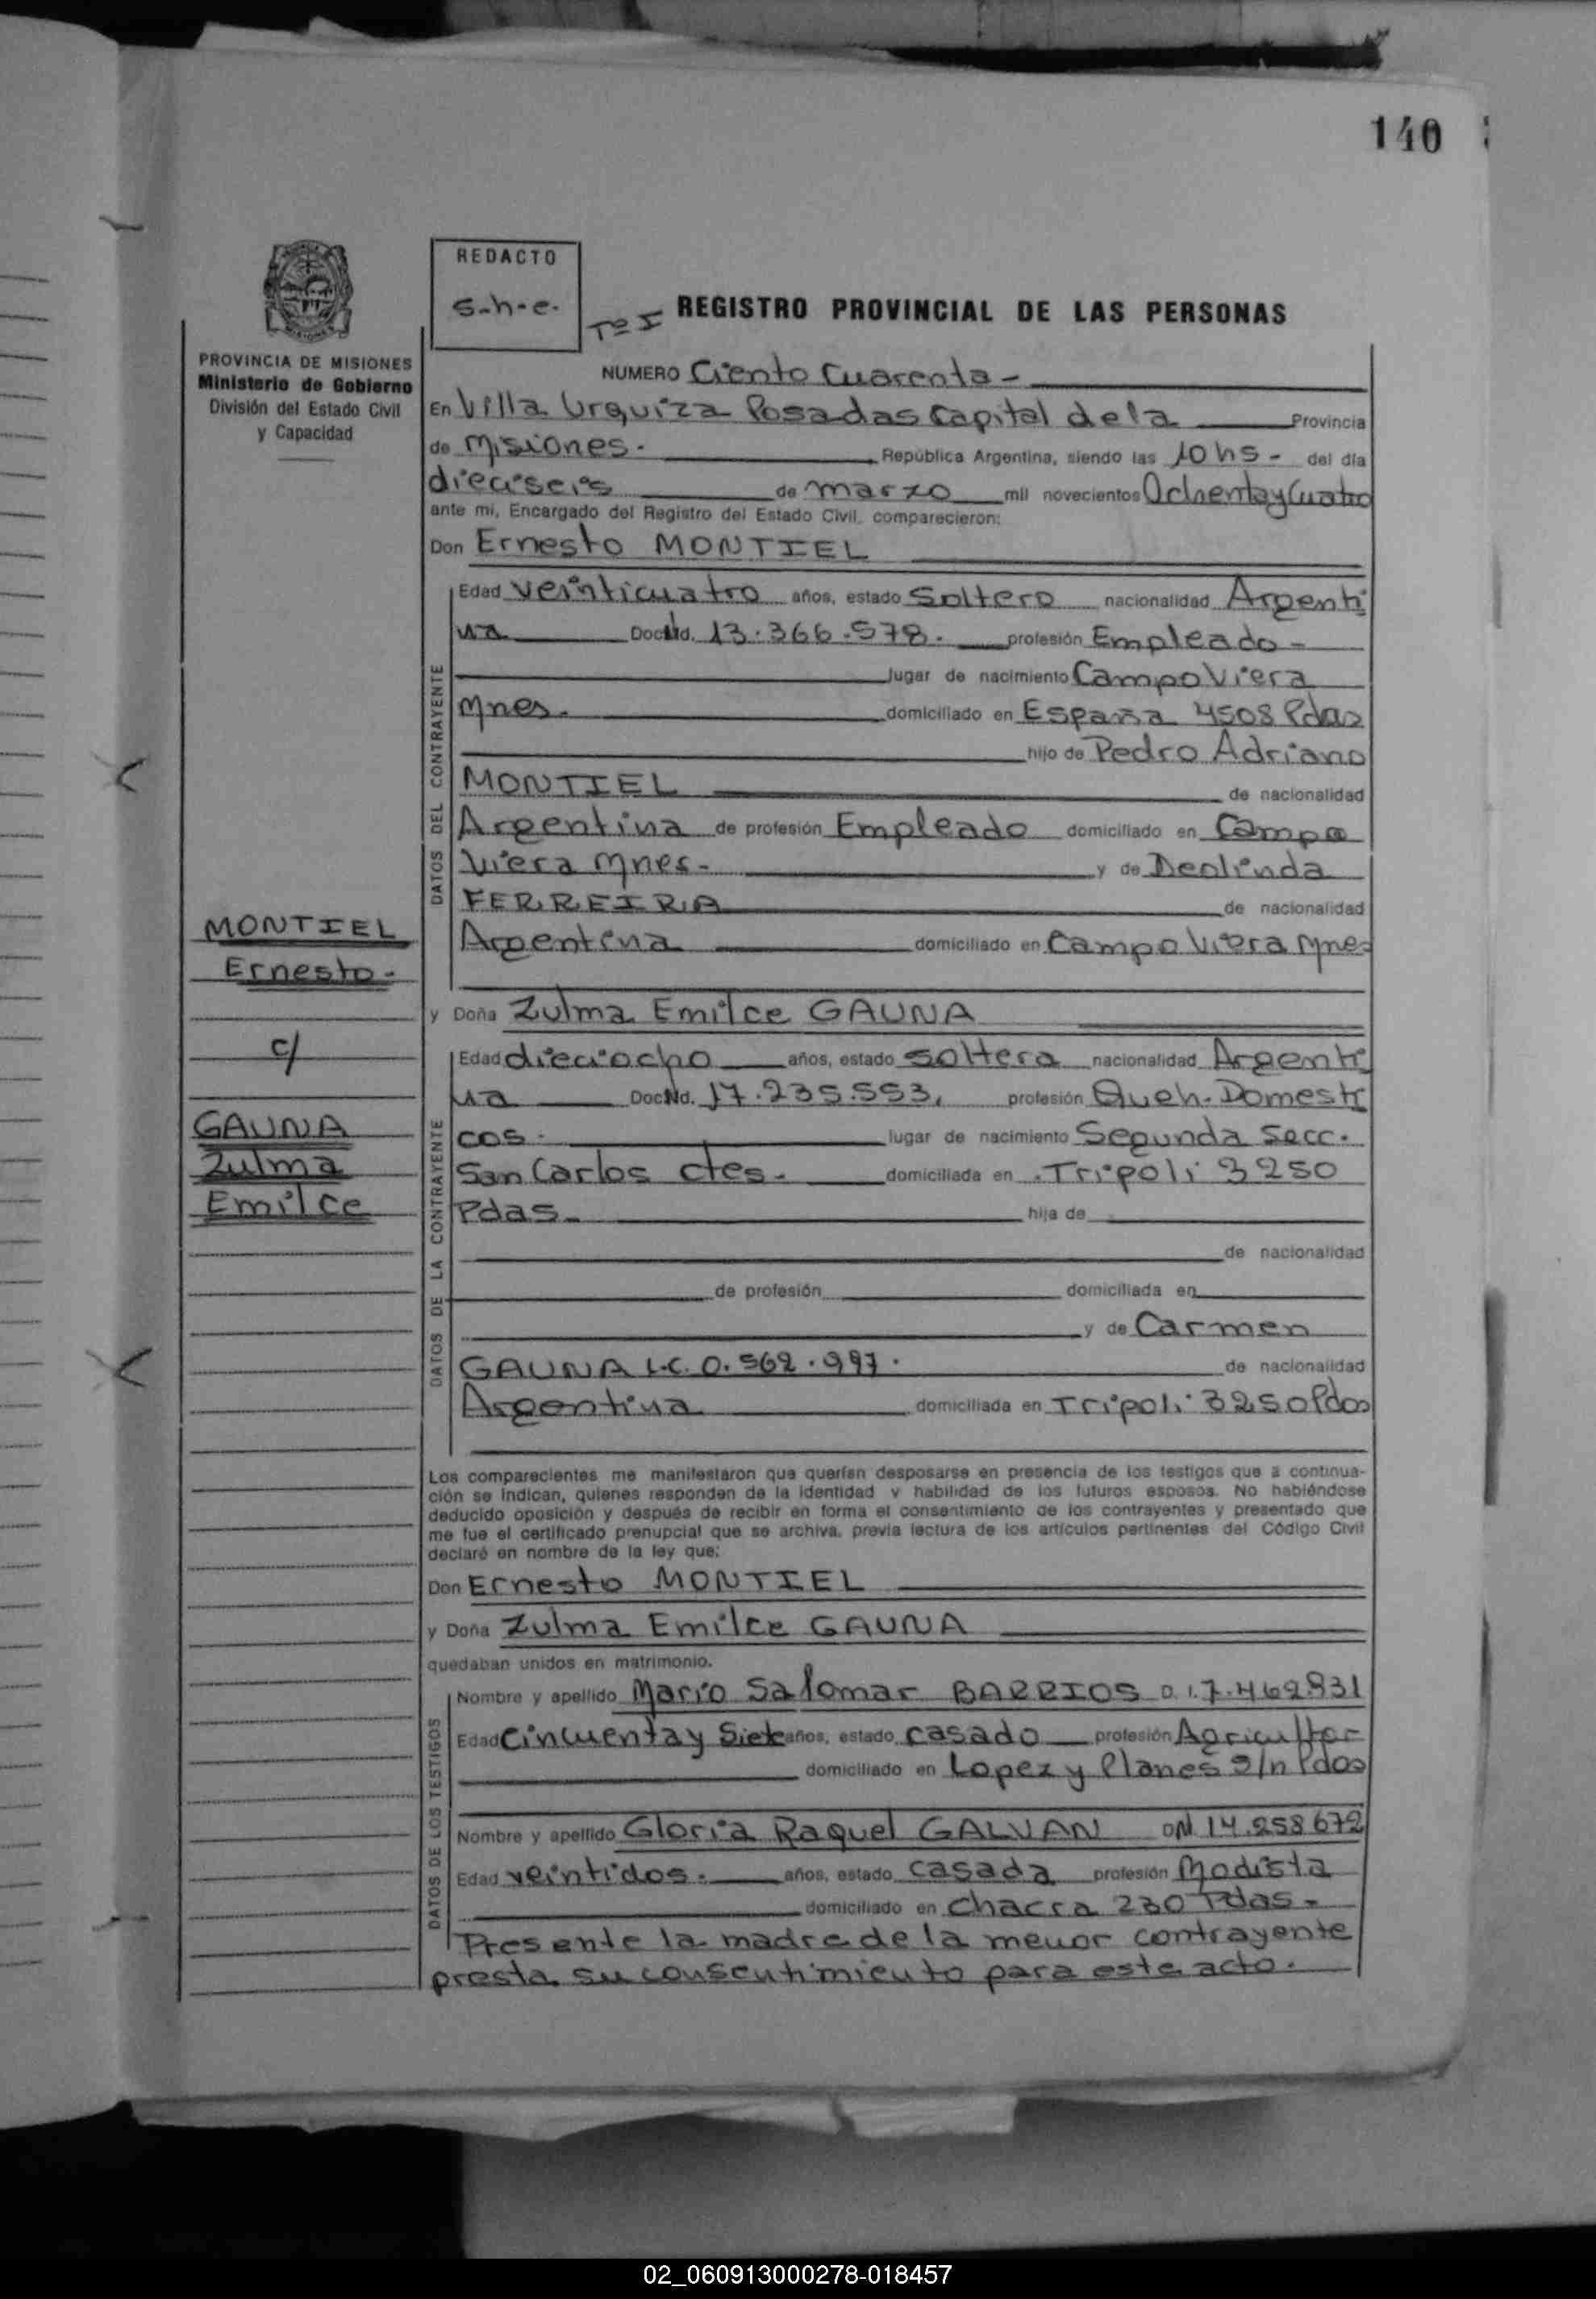 140
REDACTO
S-h-e.
Tº I
REGISTRO PROVINCIAL DE LAS PERSONAS
PROVINCIA DE MISIONES
Ministerio de Gobierno
División del Estado Civil
y Capacidad
NUMERO Ciento Cuarenta-
En Villa Urquiza Posadas Capital de la Provincia
de Misiones- República Argentina, siendo las 10 hs- del día
dieciseis de marzo mil novecientos Ochenta y Cuatro
ante mi, Encargado del Registro del Estado Civil, comparecieron:
Don Ernesto MONTIEL
DATOS DEL CONTRAYENTE
Edad veinticuatro años, estado Soltero nacionalidad Argenti
na Doc Nd. 13.366.578. profesión Empleado-
lugar de nacimiento Campo Viera
Mnes- domiciliado en España 4508 Pdas
hijo de Pedro Adriano
MONTIEL de nacionalidad
Argentina de profesión Empleado domiciliado en Campo
Viera Mnes- y de Deolinda
FERREIRA de nacionalidad
Argentina domiciliado en Campo Viera Mnes
MONTIEL
Ernesto-
c/
GAUNA
Zulma
Emilce
y Doña Zulma Emilce GAUNA
DATOS DE LA CONTRAYENTE
Edad dieciocho años, estado soltera nacionalidad Argenti
na Doc Nd. 17.235.553, profesión Queh. Domesti
cos- lugar de nacimiento Segunda Secc.
San Carlos ctes- domiciliada en Tripoli 3250
Pdas- hija de
de nacionalidad
de profesión domiciliada en
y de Carmen
GAUNA L.C. 0.562.997. de nacionalidad
Argentina domiciliada en Tripoli 3250 Pdas
Los comparecientes me manifestaron que querían desposarse en presencia de los testigos que a continua-
ción se indican, quienes responden de la identidad y habilidad de los futuros esposos. No habiéndose
deducido oposición y después de recibir en forma el consentimiento de los contrayentes y presentado que
me fue el certificado prenupcial que se archiva, previa lectura de los artículos pertinentes del Código Civil
declaré en nombre de la ley que:
Don Ernesto MONTIEL
y Doña Zulma Emilce GAUNA
quedaban unidos en matrimonio.
DATOS DE LOS TESTIGOS
Nombre y apellido Mario Salomar BARRIOS D.I. 7.462.831
Edad Cincuenta y Siete años, estado casado profesión Agricultor
domiciliado en Lopez y Planes S/n Pdas
Nombre y apellido Gloria Raquel GALVAN DNI 14.258.672
Edad veintidos. años, estado casada profesión Modista
domiciliado en Chacra 230 Pdas-
Presente la madre de la menor contrayente
presta su consentimiento para este acto.
02_060913000278-018457